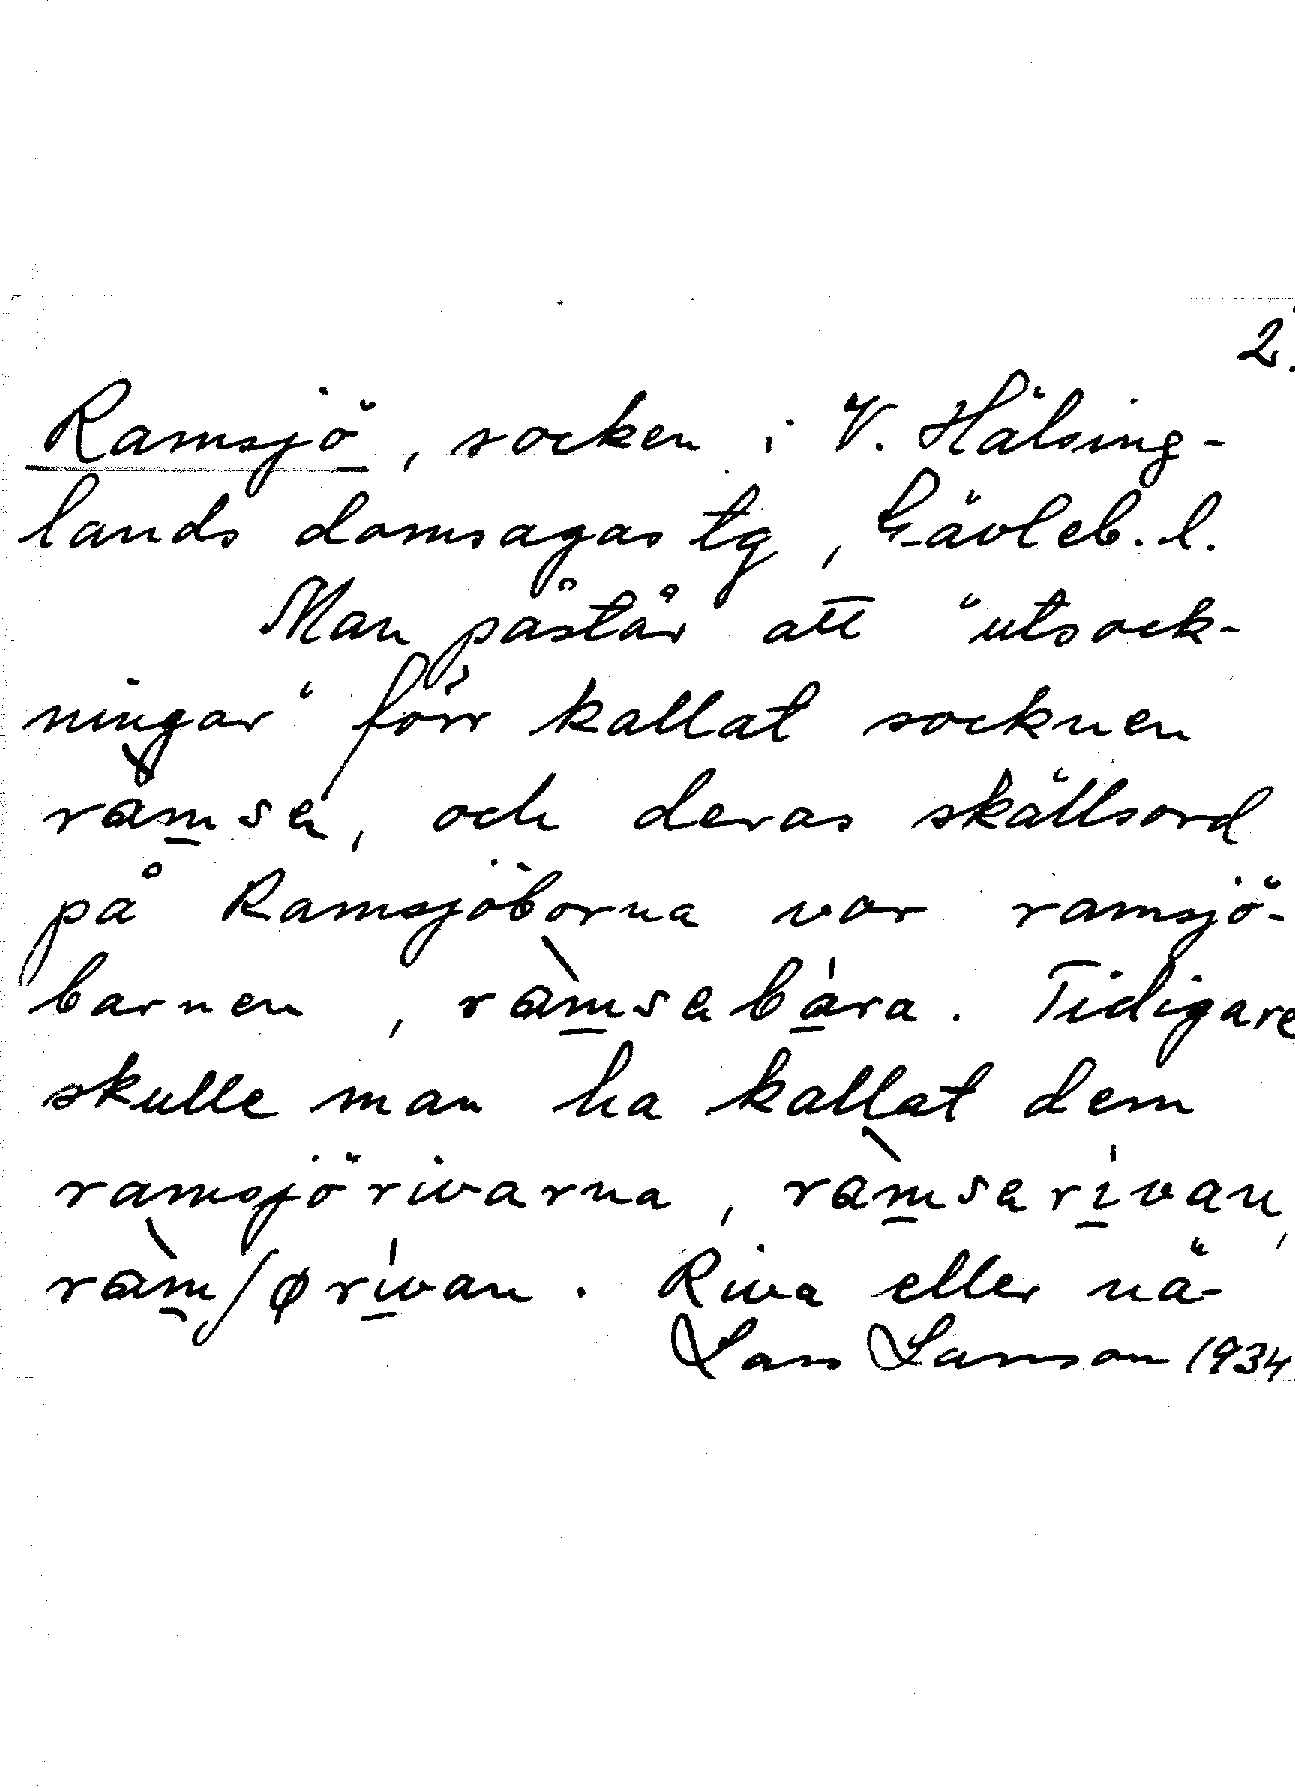 2.
Ramsjö, socken i V. Hälsing-
lands domsagas tg, Gävleb. l.
Man påstår att "utsock-
ningar" förr kallat socknen
ràm̲sa, och deras skällsord
på Ramsjöborna var ramsjö-
barnen, ràm̲saba̲̍ra. Tidigare
skulle man ha kallat dem
ramsjörivarna, ràm̲sari̲̍van,
ràm̲ʃøri̲̍van. Riva eller nä-
Lars Larsson 1934